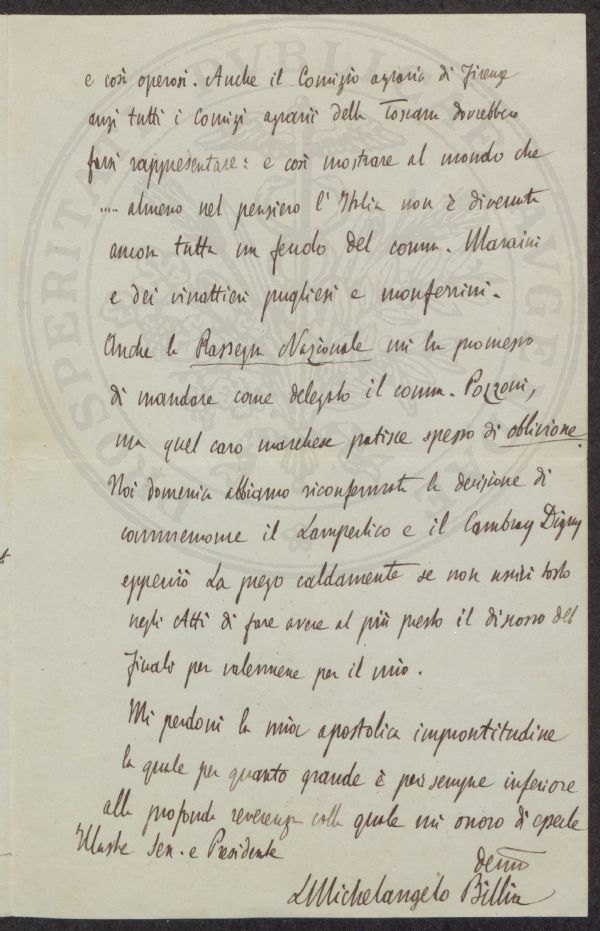 e così operosi. Anche il Comizio agrario di Firenze
anzi tutti i Comizi agrarii della Toscana dovrebbero
farsi rappresentare: e così mostrare al mondo che
.... almeno nel pensiero l'Italia non è divenuta
ancora tutta un feudo del comm. Maraini
e dei vinattieri pugliesi e monferrini.
Anche la Rassegna Nazionale mi ha promesso
di mandare come delegato il comm. Pozzoni,
ma quel caro marchese patisce spesso di oblivione.
Noi domenica abbiamo riconfermata la decisione di
commemorare il Lampertico e il Cambray Digny
epperciò La prego caldamente se non uscirà tosto
negli Atti di fare avere al più presto il discorso del
Finali per valermene per il mio.
Mi perdoni la mia apostolica improntitudine
la quale per quanto grande è pur sempre inferiore
alla profonda reverenza colla quale mi onoro di essere
Illustre Sen. e Presidente
devmo
LMichelangelo Billia
PROSPERITAS PVBLICAE AVGE